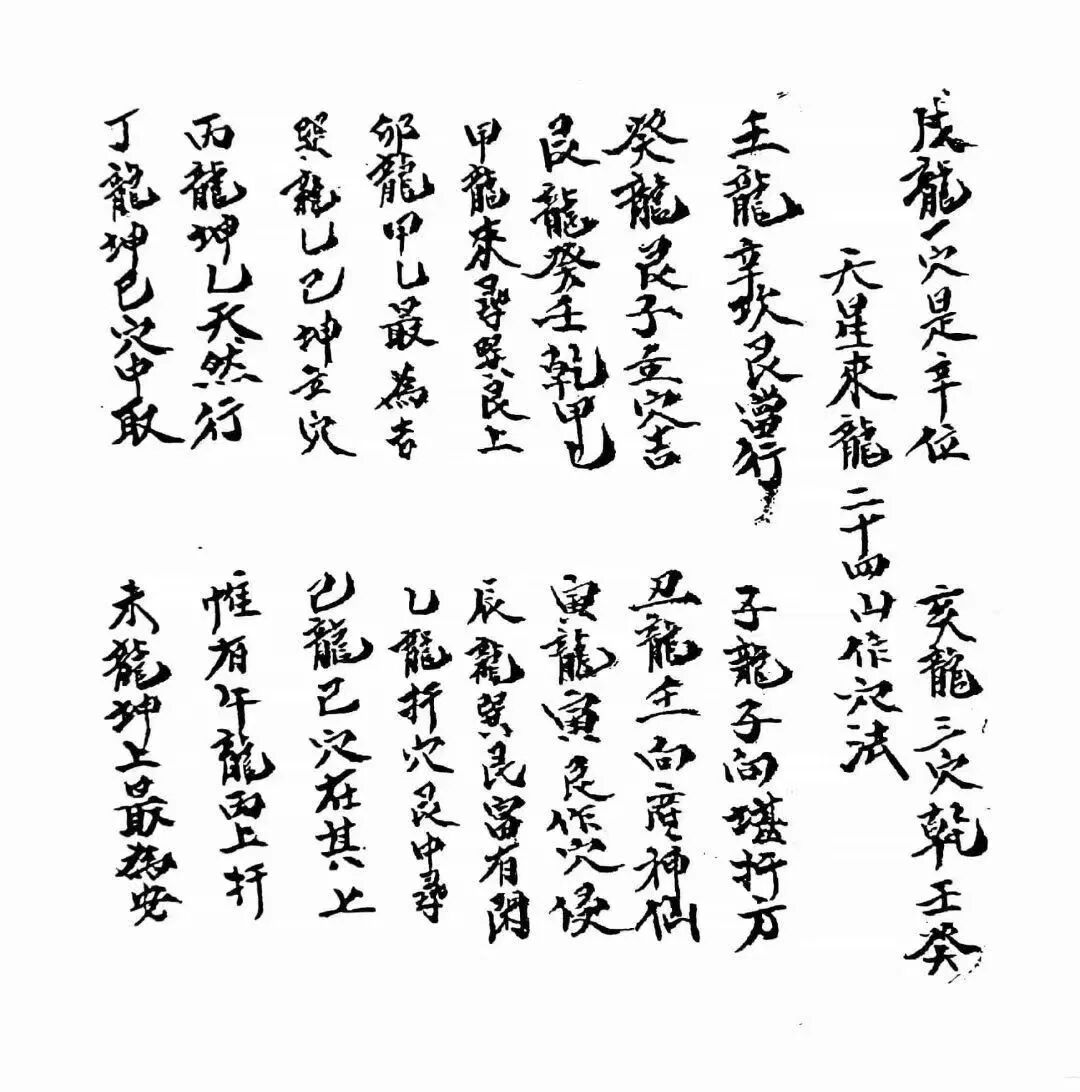 戌龍一穴是辛位
亥龍三穴乾壬癸
天星來龍二十四山作穴法
壬龍辛坎艮當行
子龍子向堪扦方
癸龍艮子立穴吉
丑龍壬向産神仙
艮龍癸壬乾甲
寅龍寅艮作穴侵
甲龍來尋巽艮上
辰龍巽艮富有閑
卯龍甲乙最為吉
乙龍扦穴艮中尋
巽龍乙巳坤立穴
巳龍巳穴在其上
丙龍坤乙天然行
惟有午龍丙上扦
丁龍坤巳穴中取
未龍坤上最為安